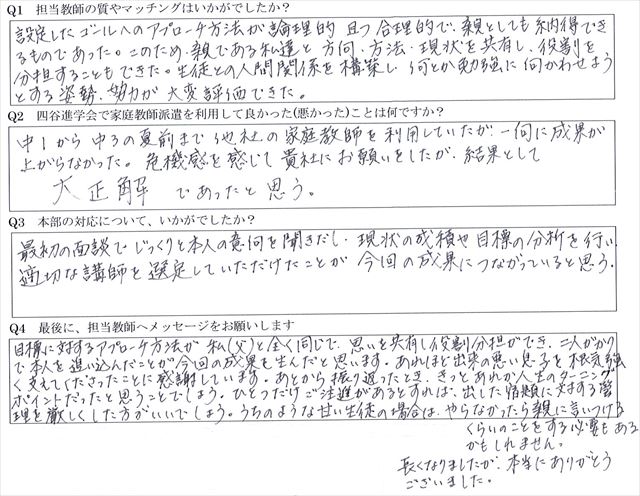 Q1 担当教師の質やマッチングはいかがでしたか?
設定したゴールへのアプローチ方法が論理的且つ合理的で、親としても納得でき
るものであった。このため、親である私達と方向・方法・現状を共有し、役割を
分担することもできた。生徒との人間関係を構築し、何とか勉強に向かわせよう
とする姿勢、努力が大変評価できた。
Q2 四谷進学会で家庭教師派遣を利用して良かった(悪かった)ことは何ですか?
中1から中3の夏前まで他社の家庭教師を利用していたが一向に成果が
上がらなかった。危機感を感じて貴社にお願いをしたが、結果として
大正解であったと思う。
Q3 本部の対応について、いかがでしたか?
最初の面談でじっくりと本人の意向を聞きだし、現状の成績や目標の分析を行い
適切な講師を選定していただけたことが今回の成果につながっていると思う。
Q4 最後に、担当教師へメッセージをお願いします
目標に対するアプローチ方法が私(父)と全く同じで、思いを共有し役割分担ができ、二人がかり
で本人を追い込んだことが今回の成果を生んだと思います。あれほど出来の悪い息子を根気強
く支えてくださったことに感謝しています。あとから振り返ったとき、きっとあれが人生のターニング
ポイントだったと思うことでしょう。ひとつだけご注進があるとすれば、出した宿題に対する管
理を厳しくした方がいいでしょう。うちのような甘い生徒の場合は、やらなかったら親に言いつける
くらいのことをする必要もある
かもしれません。
長くなりましたが、本当にありがとう
ございました。